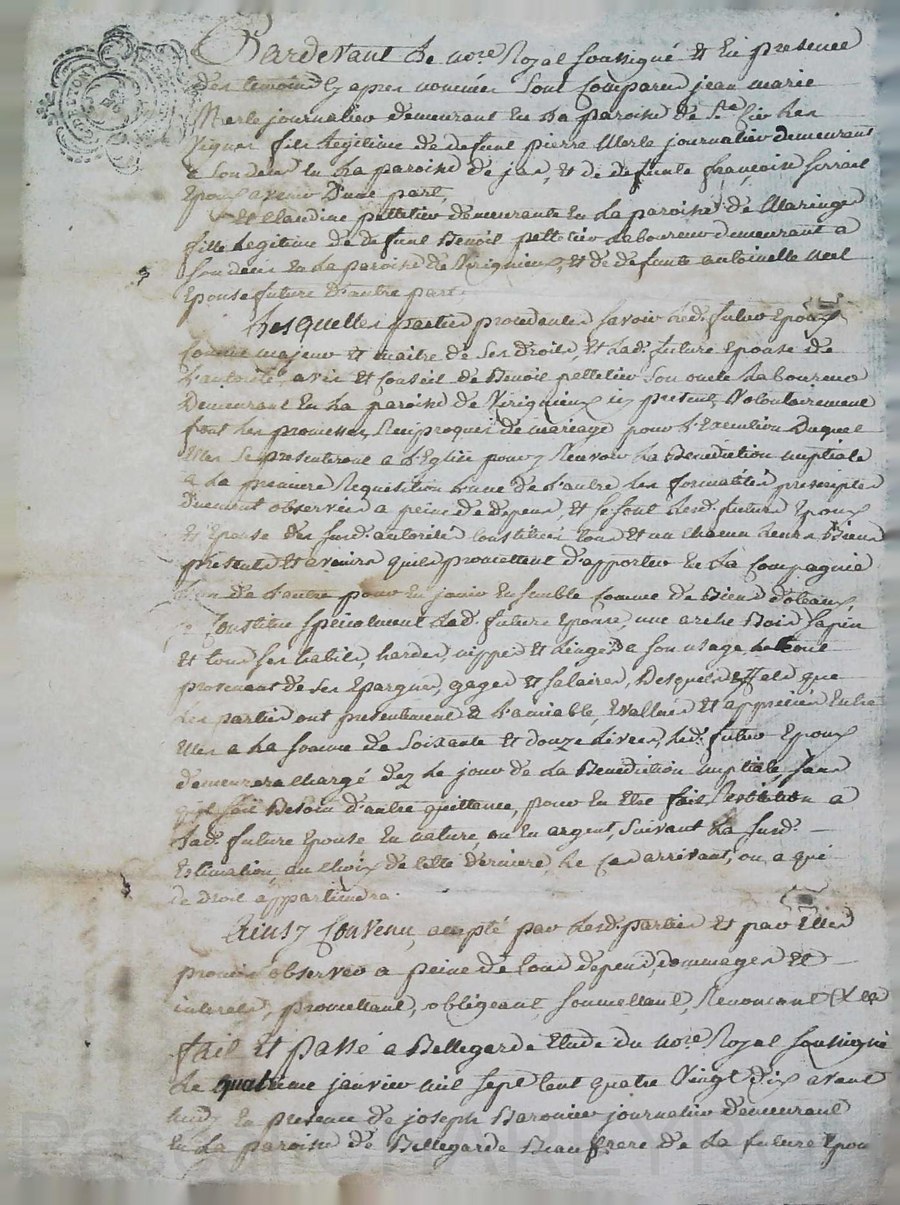 Pardevant Le nore Royal soussigné et En presence
des temoins Cy apres nommés sont comparu jean marie
Merle journalier demeurant En La paroise de St Cir Les
Vignes fils Legitime de defunt pierre Merle journalier demeurant
a son deces En La paroise de jas, et de defunte françoise
Epoux avenir D'une part,
et Claudine pelletier demeurante En La paroise de Maringe
fille Legitime de defunt Benoit pelletier Laboureur demeurant a
son deces En La paroise de Virignieux, et de defunte antoinette
Epouse future d'autre part.
Lesquelles parties procedantes savoir Led. futur Epoux
comme majeur et maitre de ses droits, et Lad. future Epouse de
L'autorité, avis et Conseil de Benoit pelletier son oncle Laboureur
Demeurant En La paroise de Virignieux cy present, Volontairement
font Les promesses Reciproques de mariage pour L'Execution Duquel
Elles se presenteront a L'Eglise pour y Recevoir La Benediction nuptiale
a La premiere Requisition L'une de L'autre Les formalités prescriptes
Duement observées a peine de depens, et se sont Lesd. futurs Epoux
et Epouse des susd. autorités Constitués tous et un chacun Leurs Biens
presents et avenirs qu'ils promettent d'apporter En La Compagnie
L'un de L'autre pour En jouir Ensemble comme de Biens dotaux,
se Constitue specialement Lad. future Epouse, une arche Bois sapin
et tous ses habits, hardes, nippes et Linges a son usage Le tout
provenant de ses Epargnes, gages et salaires, Desquels Effets que
Les parties ont presentement a L'amiable, Evallués et appreciés Entre
Elles a La somme de soixante et douze Livres, Led. futur Epoux
demeurera chargé dez Le jour de La Benediction nuptiale, sans
qu'il soit Besoin d'autre quittance, pour En Etre fait Restitution a
Lad. future Epouse En nature, ou En argent, suivant La susd.
Estimation, au choix de cette derniere, Le cas arrivant, ou a qui
de droit appartiendra.
Ainsy Convenu, accepté par Lesd. parties et par Elles
promis observer a peine de tous depens, dommages et
interets, promettant, obligeant, soumettant, Renonçant &c
fait et passé a Bellegarde Etude du nore Royal soussigné
Le quatrieme janvier mil sept Cent quatre Vingt dix avant
midy En presence de joseph Baronnier journalier demeurant
En La paroise de Bellegarde Beaufrere de La future Epou